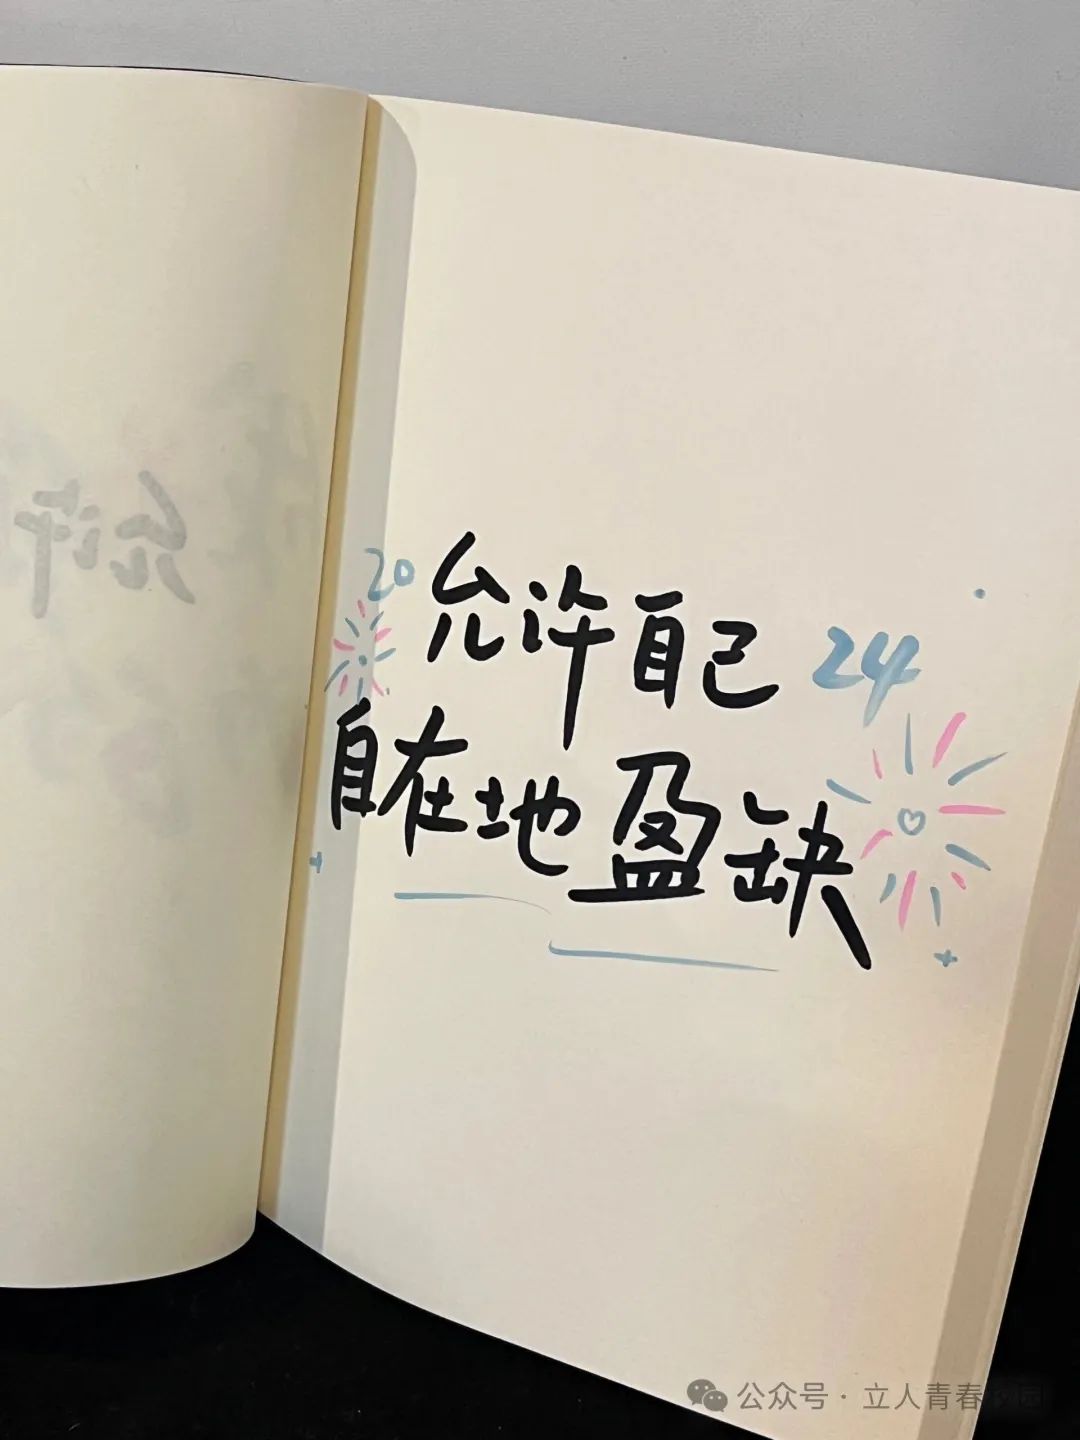 20 允许自己 24
自在地盈缺
允许
公众号·立人青春校园